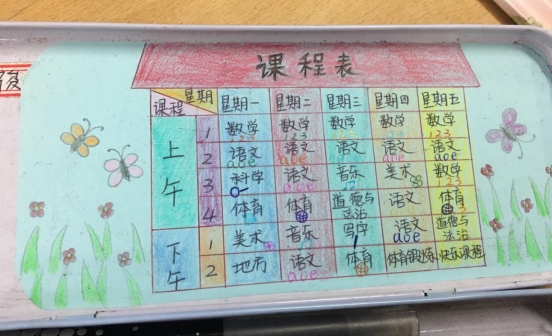 课程表
星期 课程 星期一 星期二 星期三 星期四 星期五
上午
1 数学 123 数学 123 数学 数学 数学 123
2 语文 aoe 语文 aoe 语文 语文 aoe 语文 aoe
3 科学 语文 aoe 音乐 美术 数学 123
4 体育 体育 道德与法治 语文 体育
下午
1 美术 音乐 写字 语文 aoe 道德与法治
2 地方 语文 aoe 体育 体育锻炼 快乐课程